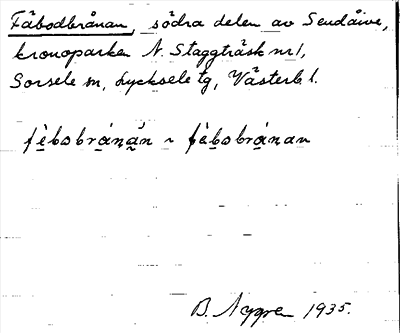 Fäbodbrånan, södra delen av Sendåive,
kronoparken N. Staggträsk nr 1,
Sorsele sn, Lycksele tg, Västerb l.
fèbobránan ~ fèbobránan
B. Nygren 1935.